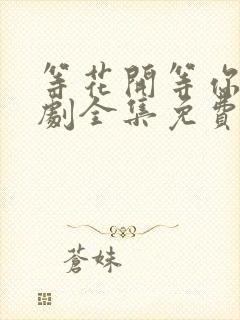 等花開等你
劇全集免費
蒼妹